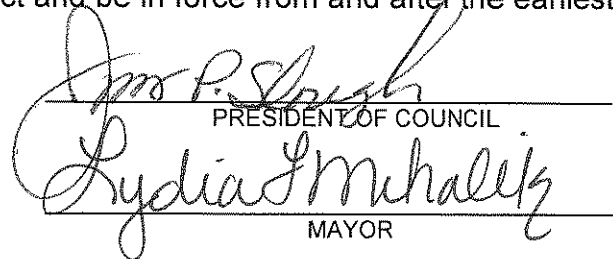 ct and be in force from and after the earliest
P.
PRESIDENT OF COUNCIL
Lydia L Mihalik
MAYOR